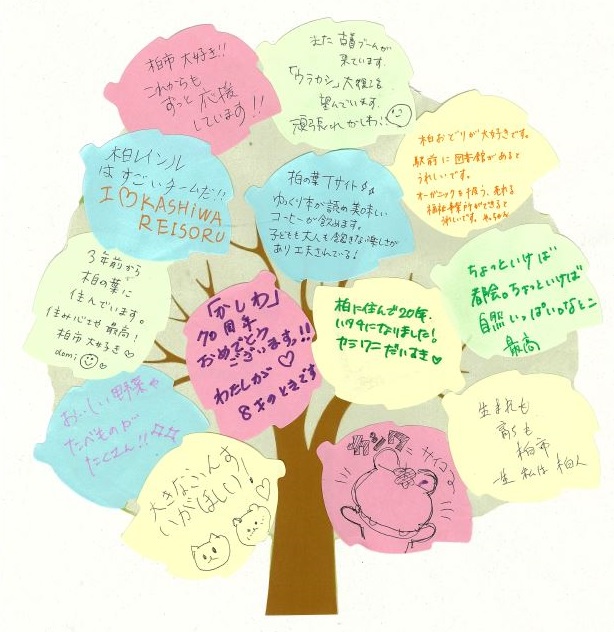 柏市 大好き!!
これからも
ずっと 応援
しています!!
また 古着ブームが
来ています。
「ウラカシ」大復活
望んでいます
頑張れかしわ!!
柏レイソル
はすごいチームだ!!
I♡KASHIWA
REISORU
柏の葉Tサイト
ゆっくり本が読め美味しい
コーヒーが飲めます。
子どもも大人も飽きな 楽しさが
あり工夫されている!
柏おどりが大好きです。
駅前に図書館があると
うれしいです。
オーガニックを扱う、売れる
ができると
うれしいです。
3年前から
柏の葉に
住んでいます。
住み心地 最高!
柏市大好き♡
「かしわ」
70周年
おめでとう
ございます!!
わたしが♡
8才のときです
柏に住んで20年、
になりました!
カシワニ だいすき♡
ちょっといけば
都会。ちょっといけば
自然いっぱいなとこ
最高
おいしい野菜や
たべものが
たくさん!!
大きなふんす
いがほしい!♡
カシワニ サイコー
生まれも
育ちも
柏市
一生 私は 柏人